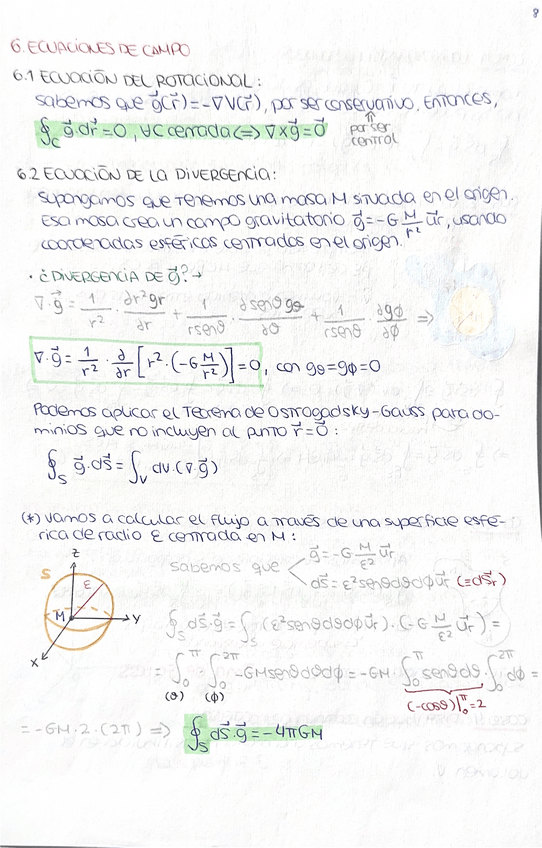 8
6. ECUACIONES DE CAMPO
6.1 ECUACIÓN DEL ROTACIONAL:
Sabemos que g⃗(r⃗) = -∇V(r⃗), por ser conservativo, entonces,
∮_C g⃗·dr⃗ = 0, ∀C cerrada ⟺ ∇×g⃗ = 0⃗
⇑ por ser
central
6.2 ECUACIÓN DE LA DIVERGENCIA:
Supongamos que tenemos una masa M situada en el origen.
Esa masa crea un campo gravitatorio g⃗ = -G M/r² u⃗r, usando
coordenadas esféricas centradas en el origen.
· ¿DIVERGENCIA DE g⃗? →
∇·g⃗ = 1/r² · ∂r²gr/∂r + 1/(r senθ) · ∂senθ gθ/∂θ + 1/(r senθ) · ∂gϕ/∂ϕ ⇒
∇·g⃗ = 1/r² · ∂/∂r [r²·(-G M/r²)] = 0, con gθ = gϕ = 0
Podemos aplicar el Teorema de Ostrogadsky-Gauss para do-
minios que no incluyen al punto r⃗ = 0⃗:
∮_S g⃗·ds⃗ = ∫_V dv·(∇·g⃗)
(*) Vamos a calcular el flujo a través de una superficie esfé-
rica de radio ε centrada en M:
z
S
ε
M
y
x
sabemos que
g⃗ = -G M/ε² u⃗r
ds⃗ = ε² senθ dθ dϕ u⃗r (= ds⃗r)
∮_S ds⃗·g⃗ = ∫_S (ε² senθ dθ dϕ u⃗r)·(-G M/ε² u⃗r) =
∫_0^π ∫_0^2π -GM senθ dθ dϕ = -GM ∫_0^π senθ dθ · ∫_0^2π dϕ =
(θ) (ϕ)
(-cosθ)|_0^π = 2
= -GM·2·(2π) ⇒ ∮_S ds⃗·g⃗ = -4πGM